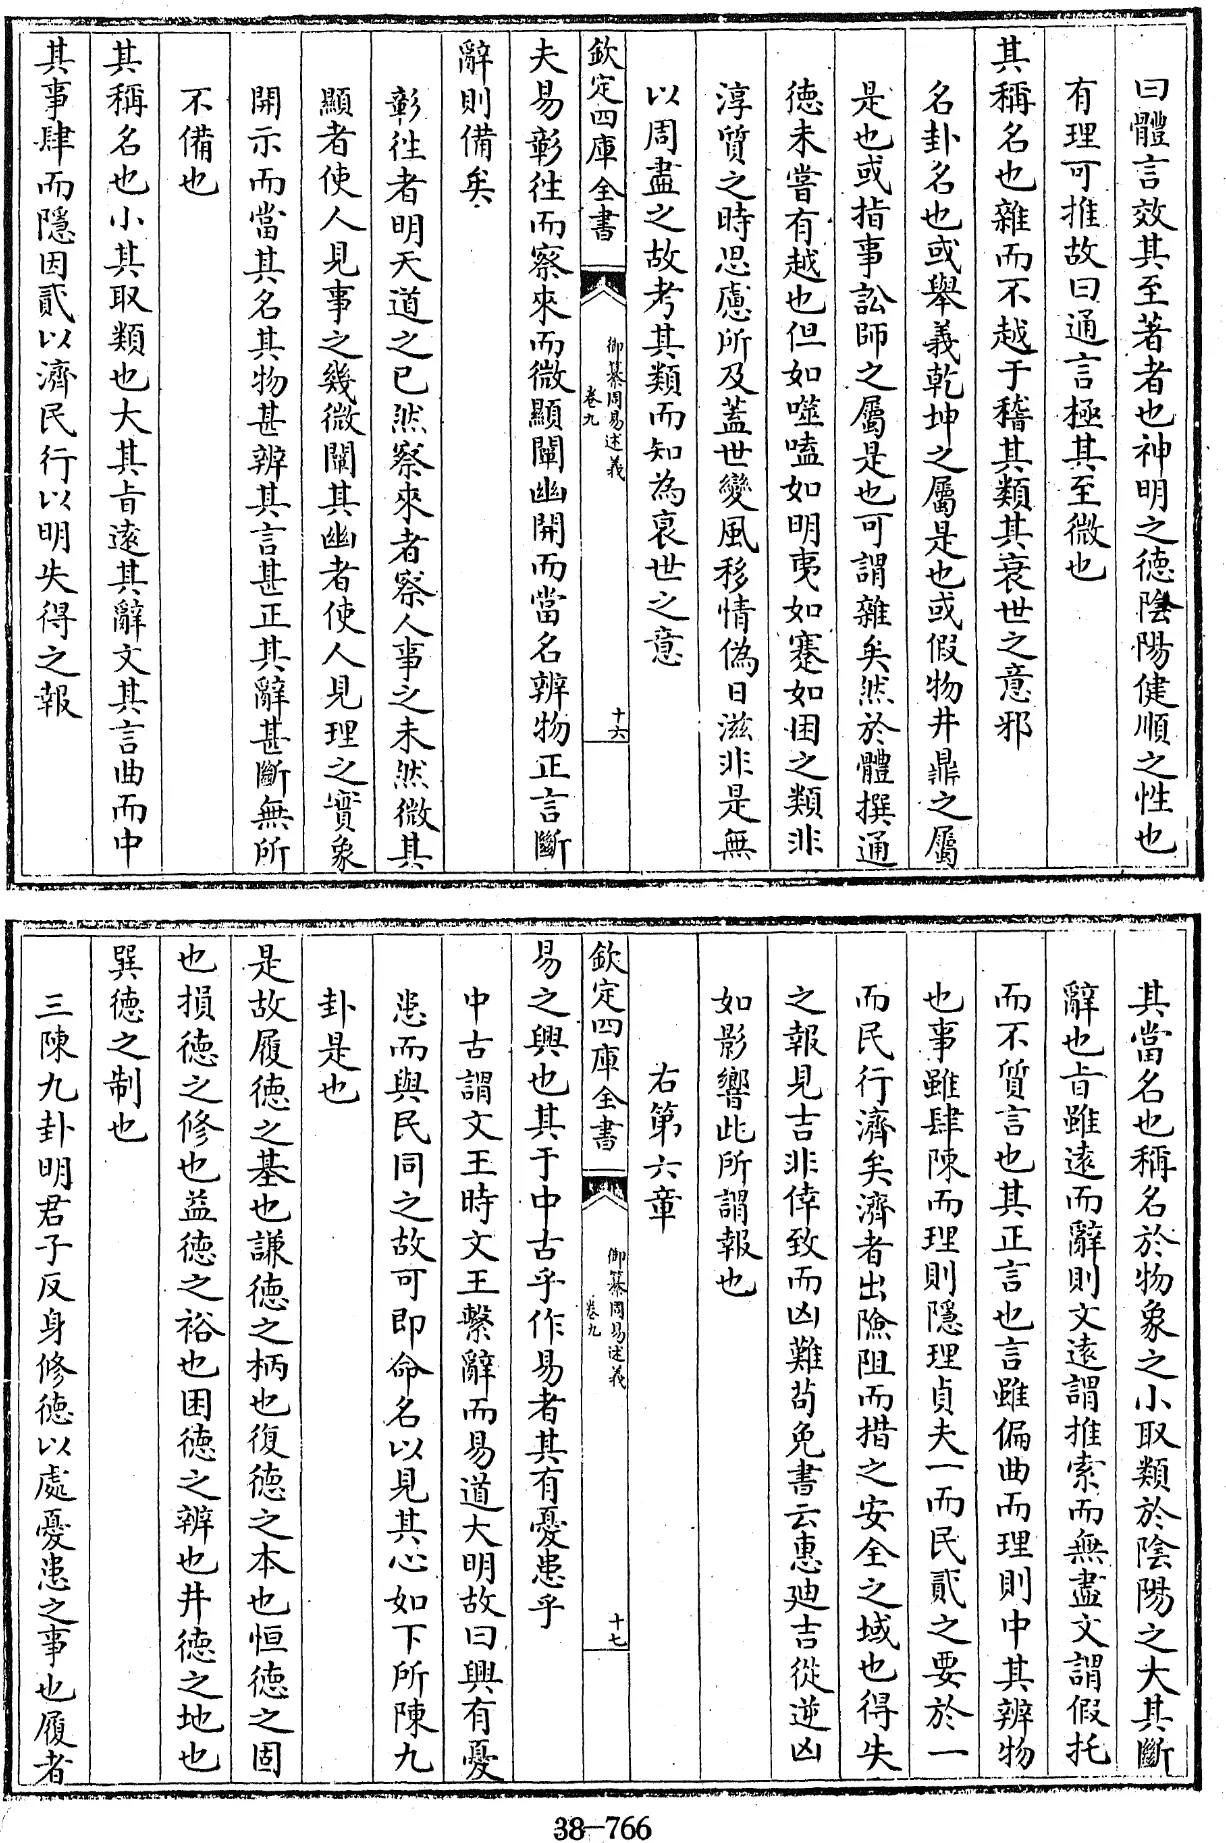 曰體言效其至著者也神明之德陰陽健順之性也
有理可推故曰通言極其至微也
其稱名也雜而不越于稽其類其衰世之意邪
名卦名也或舉義乾坤之屬是也或假物井鼎之屬
是也或指事訟師之屬是也可謂雜矣然於體撰通
德未嘗有越也但如噬嗑如明夷如蹇如困之類非
淳質之時思慮所及蓋世變風移情偽日滋非是無
以周盡之故考其類而知為衰世之意
欽定四庫全書
御纂周易述義
卷九
十六
夫易彰徃而察來而微顯闡幽開而當名辨物正言斷
辭則備矣
彰徃者明天道之已然察來者察人事之未然微其
顯者使人見事之幾微闡其幽者使人見理之實象
開示而當其名其物甚辨其言甚正其辭甚斷無所
不備也
其稱名也小其取類也大其旨遠其辭文其言曲而中
其事肆而隱因貳以濟民行以明失得之報
其當名也稱名於物象之小取類於陰陽之大其斷
辭也旨雖遠而辭則文遠謂推索而無盡文謂假托
而不質言也其正言也言雖偏曲而理則中其辨物
也事雖肆陳而理則隱理貞夫一而民貳之要於一
而民行濟矣濟者出險阻而措之安全之域也得失
之報見吉非倖致而凶難苟免書云惠廸吉從逆凶
如影響此所謂報也
右第六章
欽定四庫全書
御纂周易述義
卷九
十七
易之興也其于中古乎作易者其有憂患乎
中古謂文王時文王繫辭而易道大明故曰興有憂
患而與民同之故可即命名以見其心如下所陳九
卦是也
是故履德之基也謙德之柄也復德之本也恒德之固
也損德之修也益德之裕也困德之辨也井德之地也
巽德之制也
三陳九卦明君子反身修德以處憂患之事也履者
38—766